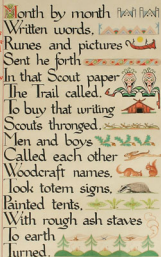 Month by month
Written words,
Runes and pictures
Sent he forth
In that Scout paper
The Trail called.
To buy that writing
Scouts thronged,
Men and boys
Called each other
Woodcraft names,
Took totem signs,
Painted tents,
With rough ash staves
To earth
Turned.